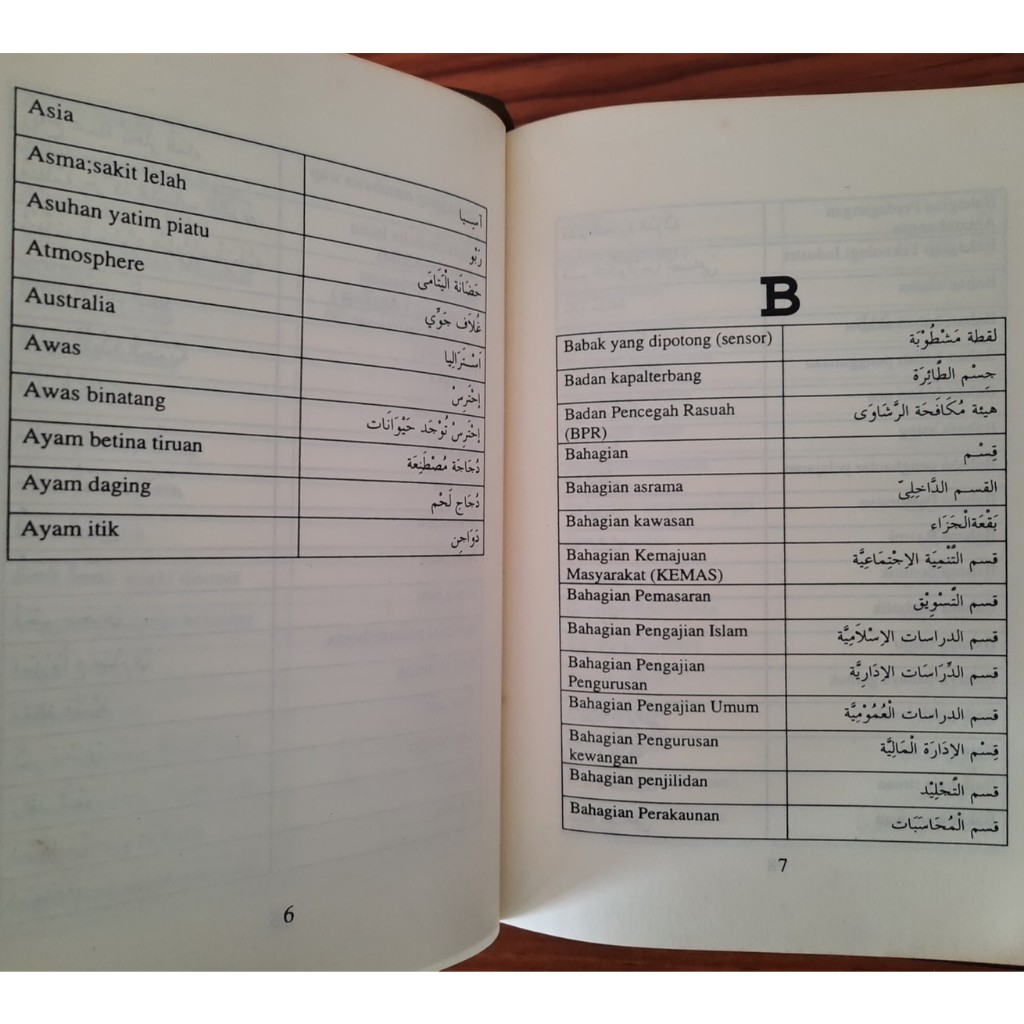 Asia آسِيا
Asma;sakit lelah رَبْو
Asuhan yatim piatu حَضَانَة الْيَتَامَى
Atmosphere غُلاَف جَوِّي
Australia اَسْتَرَاليا
Awas إحْتَرِسْ
Awas binatang إحْتَرِسْ تُوْجَد حَيْوَانَات
Ayam betina tiruan دُجَاجَة مُصْطَنِعَة
Ayam daging دُجَاج لَحْم
Ayam itik دَوَاجِن
6
B
Babak yang dipotong (sensor) لقطة مَشْطُوْبَة
Badan kapalterbang جِسْم الطَّائِرَة
Badan Pencegah Rasuah هيئة مُكَافَحَة الرَّشَاوَى
(BPR)
Bahagian قِسْم
Bahagian asrama القسم الدَّاخِلِىّ
Bahagian kawasan بَقْعَةالْجَزَاء
Bahagian Kemajuan قسم التَّنْمِيَة الاِجْتِمَاعِيَّة
Masyarakat (KEMAS)
Bahagian Pemasaran قسم التَّسْوِيْق
Bahagian Pengajian Islam قسم الدراسات الإسْلاَمِيَّة
Bahagian Pengajian قسم الدِّرَاسَات الإدَارِيَّة
Pengurusan
Bahagian Pengajian Umum قسم الدراسات الْعُمُوْمِيَّة
Bahagian Pengurusan قِسْم الإدَارَة الْمَالِيَّة
kewangan
Bahagian penjilidan قسم التَّجْلِيْد
Bahagian Perakaunan قسم الْمُحَاسَبَات
7